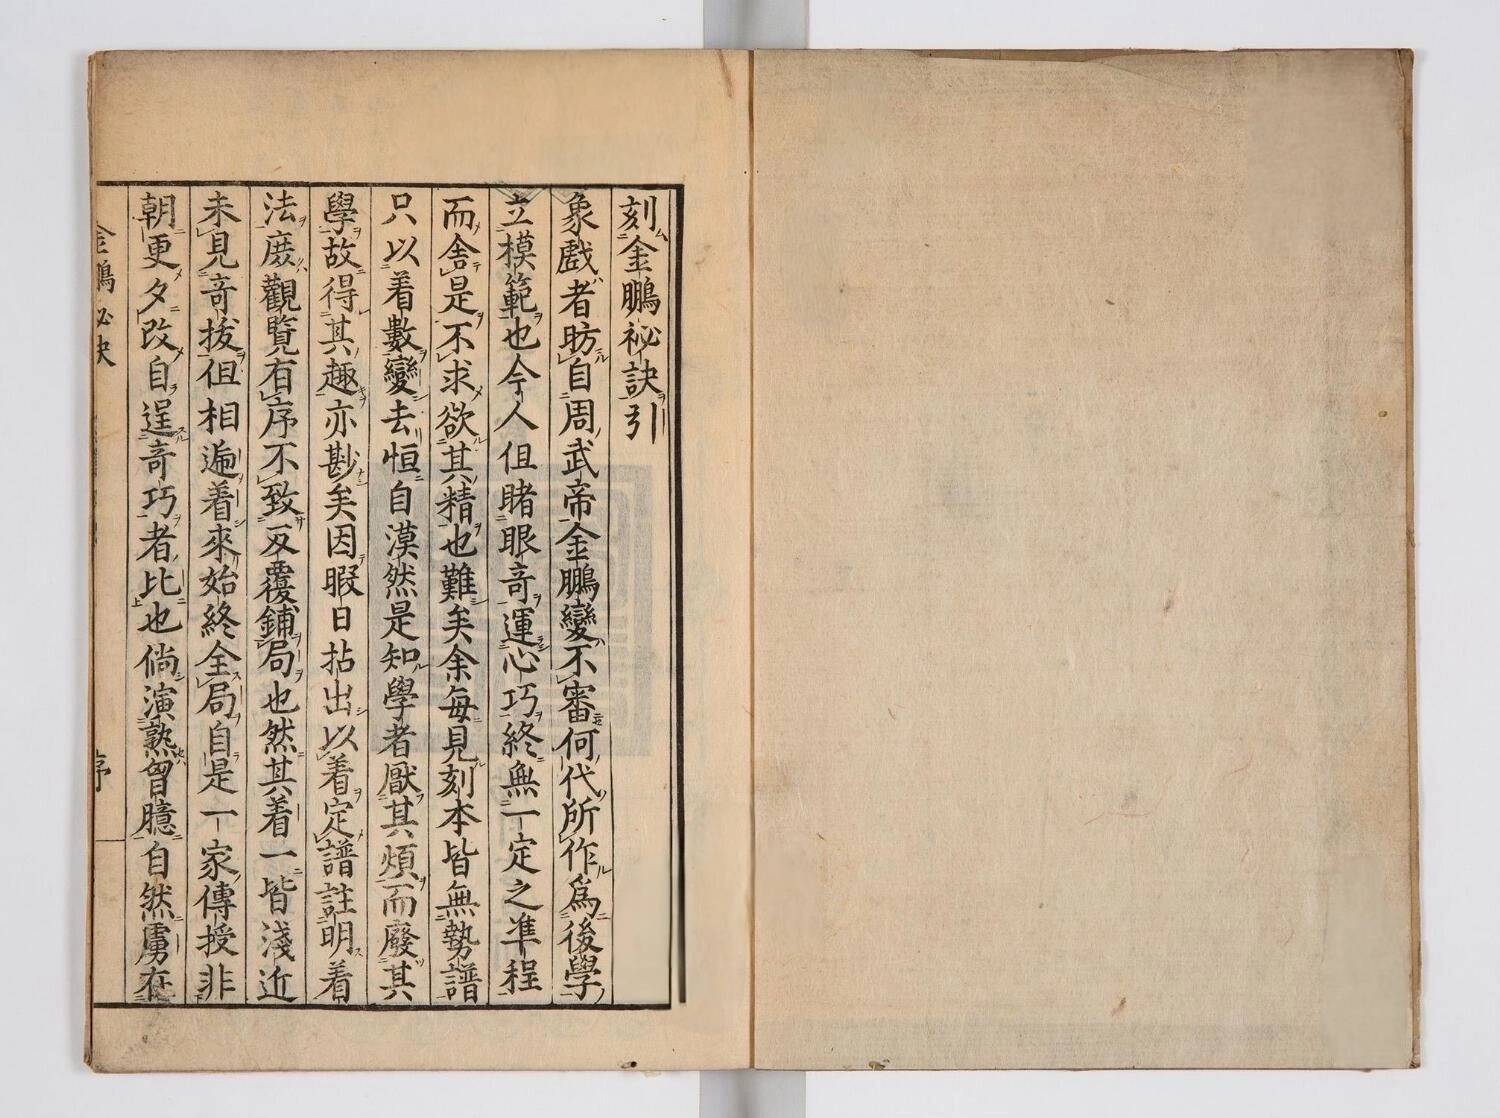 刻金鵬祕訣引
象戲者昉自周武帝金鵬變不審何代所作爲後學
立模範也今人但睹眼奇運心巧終無一定之準程
而舍是不求欲其精也難矣余每見刻本皆無勢譜
只以着數變去恒自漠然是知學者厭其煩而廢其
學故得其趣亦尠矣因暇日拈出以着定譜註明着
法庻觀覽有序不致反覆鋪局也然其着一皆淺近
未見奇拔但相遍着來始終全局自是一家傳授非
朝更夕改自逞奇巧者比也倘演熟胷臆自然虜在
金鵬祕決
序